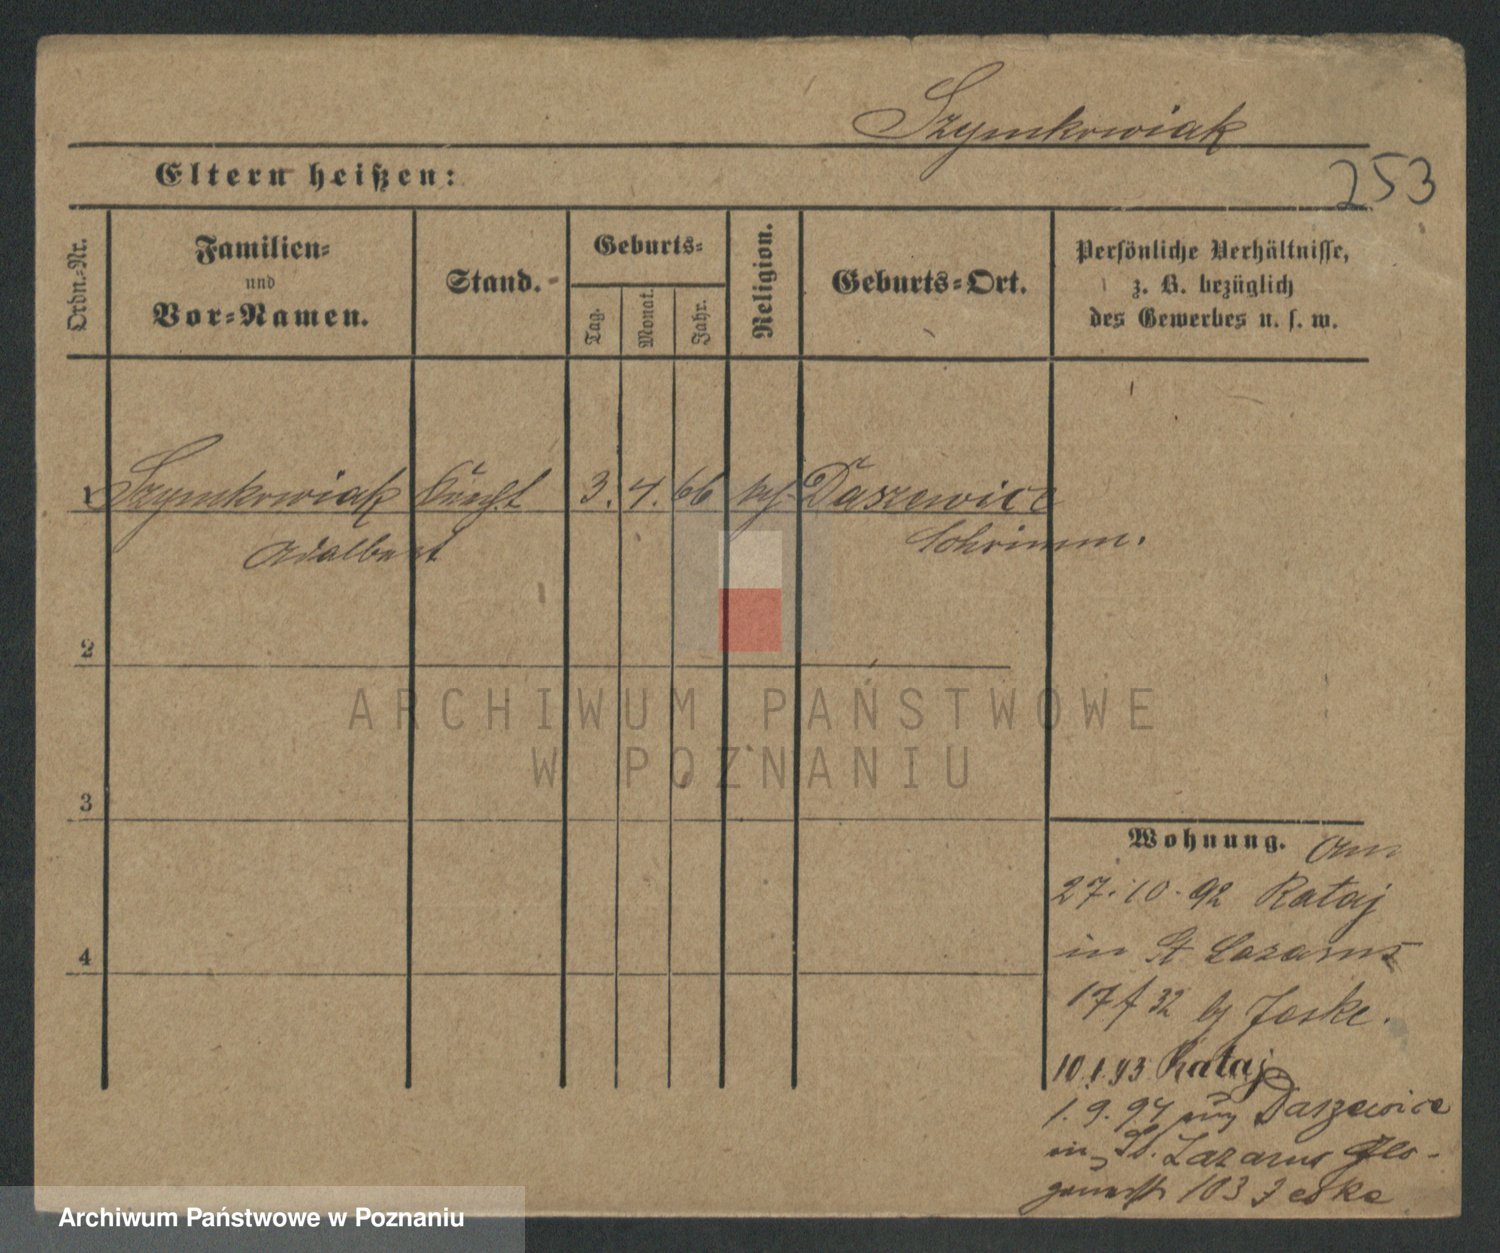 Szymkowiak
Eltern heißen:
253
Ordn.-Nr.
Familien-
und
Vor-Namen.
Stand.
Geburts-
Tag.
Monat.
Jahr.
Religion.
Geburts-Ort.
Persönliche Verhältnisse,
z. B. bezüglich
des Gewerbes u. s. w.
1 Szymkowiak Knecht 3. 4. 66 Daszewice
Adalbert Schrimm.
2
ARCHIWUM PAŃSTWOWE
W POZNANIU
3
Wohnung. Am
27.10.92 Rataj
in St Lazarus
32 Jeske.
10.1.93 Rataj
1.9.94 Daszewice
in St. Lazarus Glo-
103 Jeske
4
Archiwum Państwowe w Poznaniu